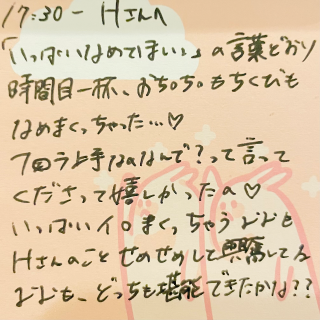 17:30 - Hさんへ
「いっぱいなめてほしい」の言葉どおり
時間目一杯、おち○ち○もちくびも
なめまくっちゃった…♡
フェラ上手なのなんで？って言って
くださって嬉しかったの♡
いっぱいイ○まくっちゃうとども
Hさんのことせめせめして興奮してる
とども、どっちも堪能できたかな??